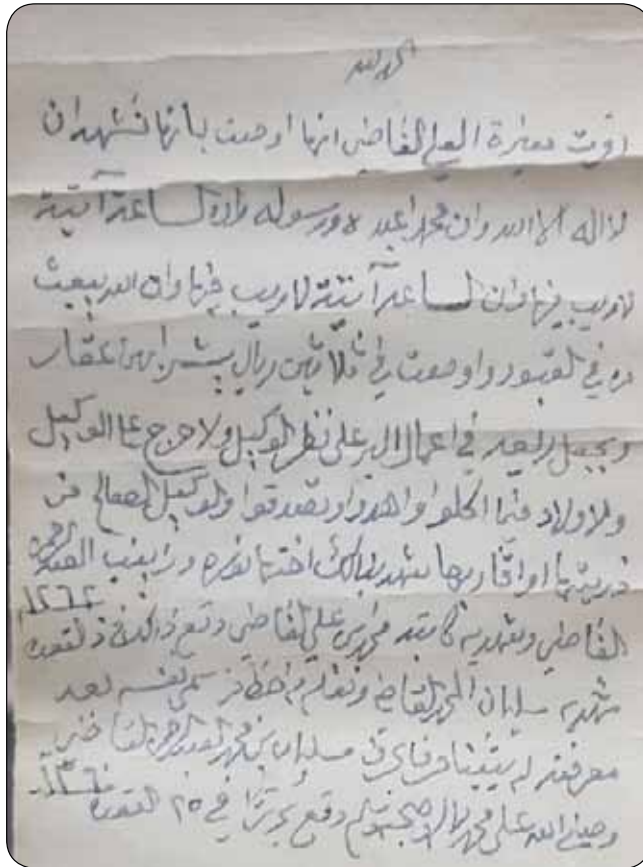 الحمد لله
اقرت منيرة العلي القاضي انها اوصت بانها تشهد ان
لا اله الا الله وان محمدا عبده ورسوله وان الساعة آتية
لا ريب فيها وان الساعة آتية لا ريب فيها وان الله يبعث
من في القبور واوصت في ثلاثين ريال يشرا بهن عقار
ويجعل ريعه في اعمال البر على نظر الوكيل ولا حرج على الوكيل
ولاولاد فيما اكلوا واهدوا وتصدقوا والوكيل الصالح من
ذريتها او اقاربها شهد بذلك اختها نوره وزينب العبد الرحمن
القاضي وشهد به كاتبه محمد بن علي القاضي وقع ذلك في ذ القعده ١٣٦٢
شهد به سليمان المحمد القاضي ونقله من خط من سمى نفسه بعد
معرفته له يقينا حرفا بحرف سليمان بن محمد العبد الرحمن القاضي
وصلى الله على محمد واله وصحبه وسلم وقع تحريرا في ٢٥ القعدة